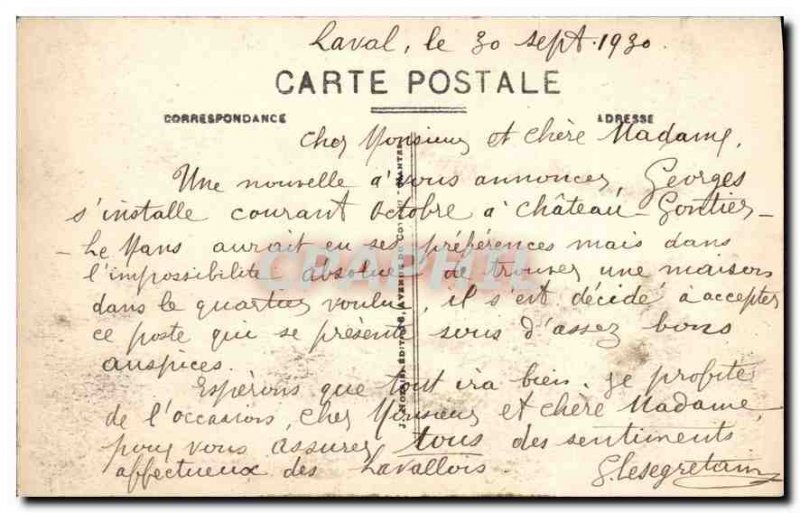 Laval, le 30 sept. 1930.
CARTE POSTALE
CORRESPONDANCE
ADRESSE
Cher Monsieur et chère Madame,
Une nouvelle à vous annoncer, Georges
s'installe courant Octobre à Château-Gontier -
Le Mans aurait eu ses préférences mais dans
l'impossibilité absolue de trouver une maison
dans le quartier voulu, il s'est décidé à accepter
ce poste qui se présente sous d'assez bons
auspices.
Espérons que tout ira bien. Je profite
de l'occasion, cher Monsieur et chère Madame,
pour vous assurer tous des sentiments
affectueux des Lavallois.
G. Lesegretain
CPAPHIL